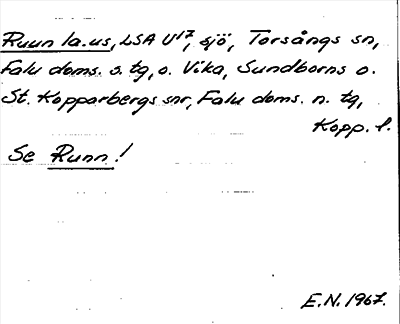 Ruun la.us, LSA U17, sjö, Torsångs sn,
Falu doms. s. tg, o. Vika, Sundborns o.
St. Kopparbergs snr, Falu doms. n. tg,
Kopp. l.
Se Runn!
E.N. 1967.